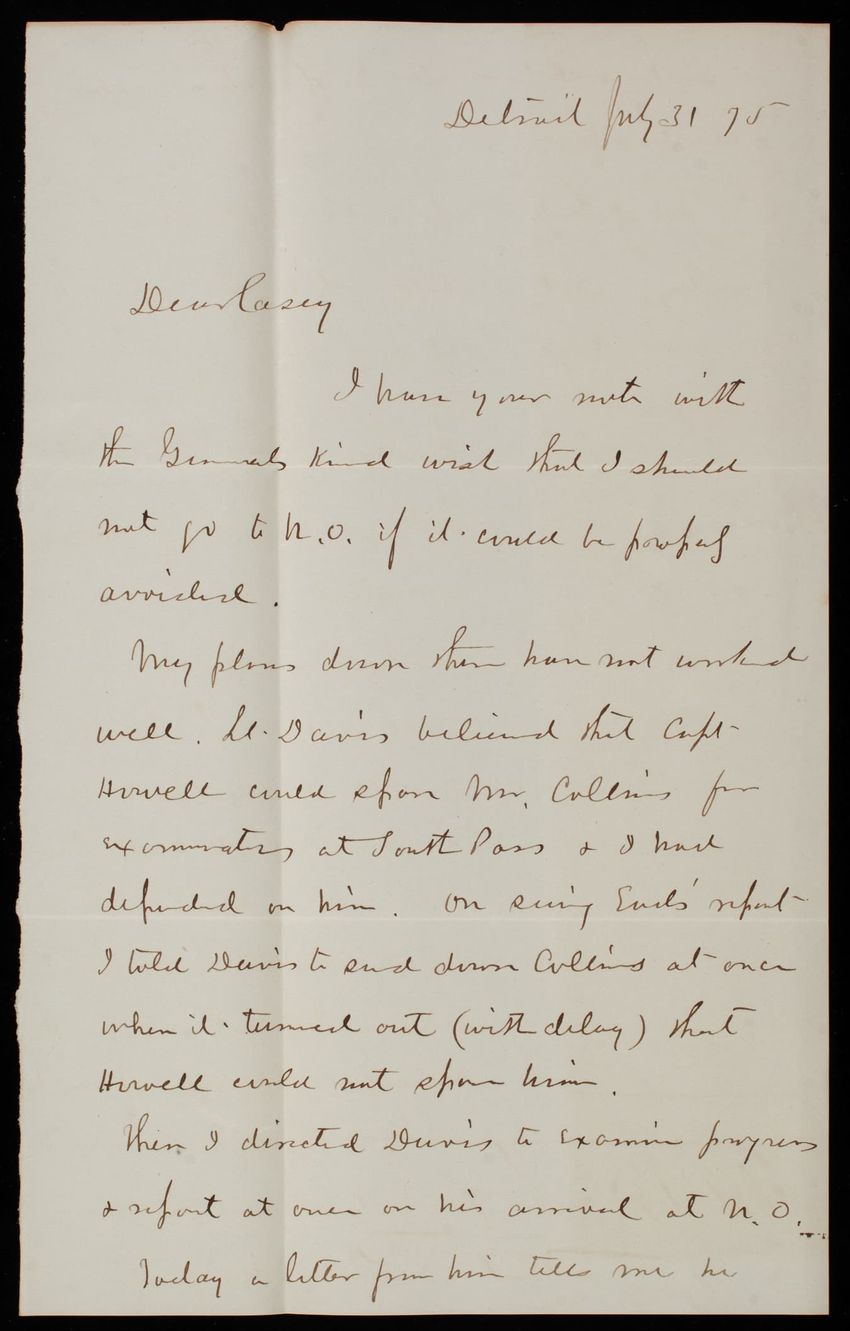 Detroit July 31 75
Dear Casey
I have your note with
the Generals kind wish that I should
not go to N.O. if it could be properly
avoided.
My plans down there have not worked
well. Lt. Davis believed that Capt
Howell could spare Mr. Collins for
examination at South Pass & I had
depended on him. On seeing Eads' report
I told Davis to send down Collins at once
when it turned out (with delay) that
Howell could not spare him.
Then I directed Davis to examine progress
& report at once on his arrival at N.O.
Today a letter from him tells me he